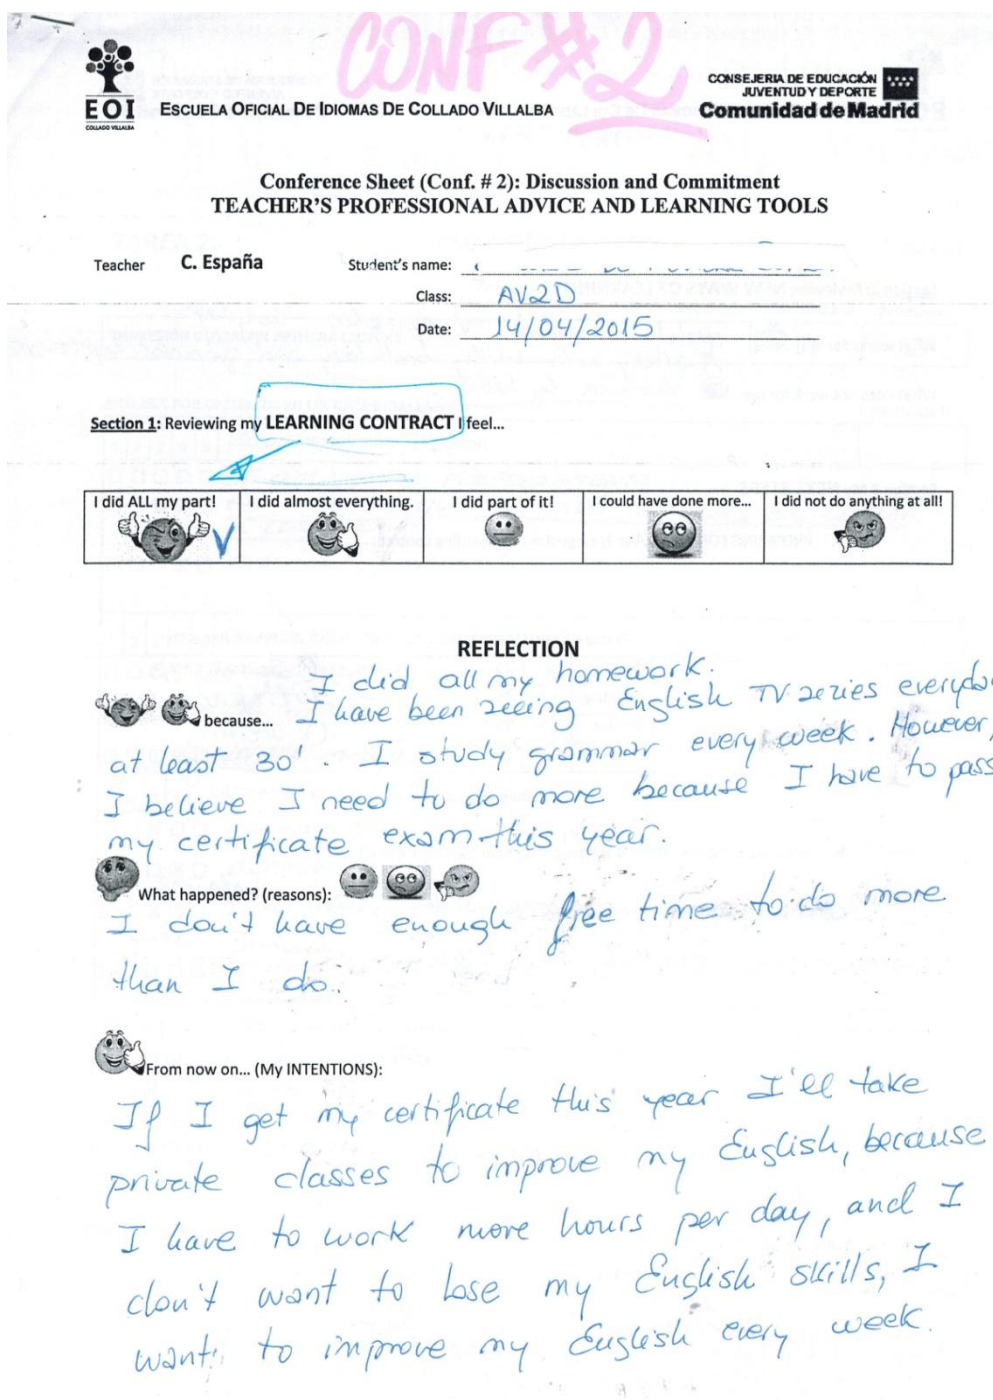 CONF #2
EOI
COLLADO VILLALBA
ESCUELA OFICIAL DE IDIOMAS DE COLLADO VILLALBA
CONSEJERIA DE EDUCACIÓN
JUVENTUD Y DEPORTE
Comunidad de Madrid
Conference Sheet (Conf. # 2): Discussion and Commitment
TEACHER'S PROFESSIONAL ADVICE AND LEARNING TOOLS
Teacher C. España Student's name:
Class: AV2D
Date: 14/04/2015
Section 1: Reviewing my LEARNING CONTRACT I feel...
I did ALL my part! I did almost everything. I did part of it! I could have done more... I did not do anything at all!
REFLECTION
I did all my homework.
because... I have been seeing English TV series
at least 30'. I study grammar every week. However,
I believe I need to do more because I have to pass
my certificate exam this year.
What happened? (reasons):
I don't have enough free time to do more
than I do.
From now on... (My INTENTIONS):
If I get my certificate this year I'll take
private classes to improve my English, because
I have to work more hours per day, and I
don't want to lose my English skills, I
want to improve my English every week.